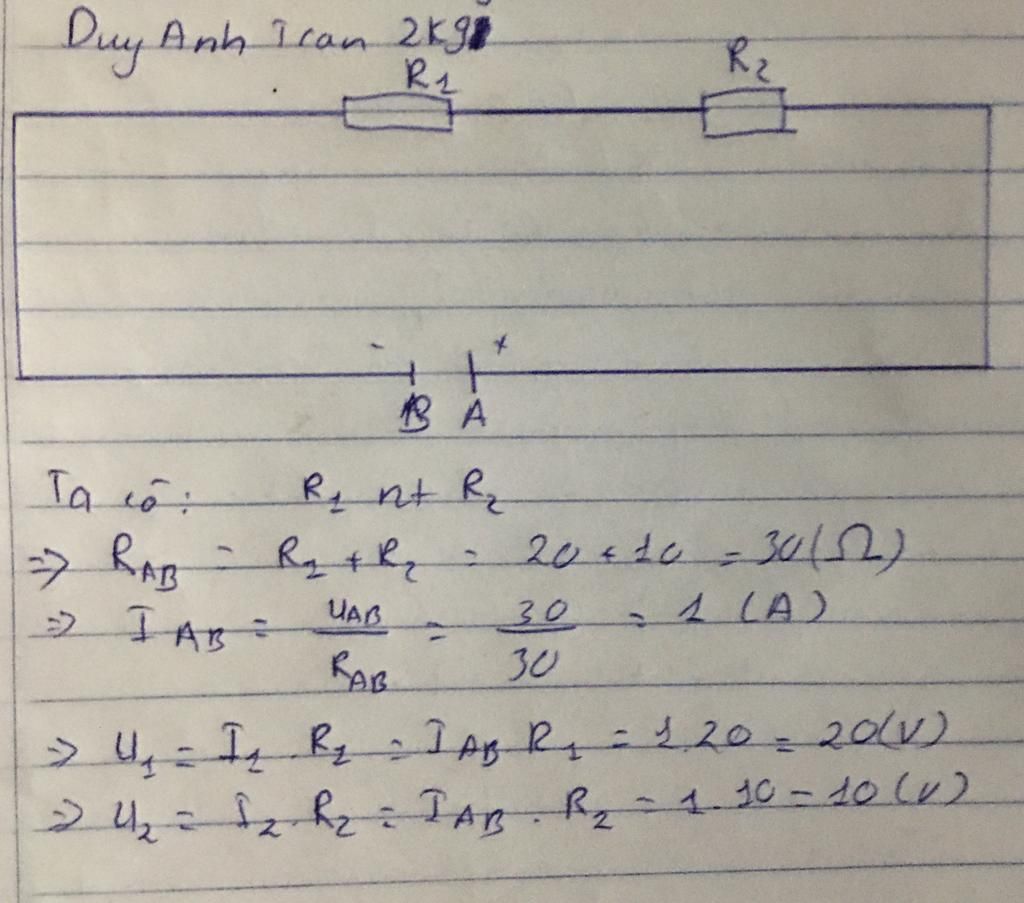 Duy Anh Tran 2K9
R1
R2
- +
B A
Ta có: R1 nt R2
=> RAB = R1 + R2 = 20 + 10 = 30(Ω)
=> IAB = UAB/RAB = 30/30 = 1 (A)
=> U1 = I1 . R1 = IAB R1 = 1.20 = 20(V)
=> U2 = I2 . R2 = IAB . R2 = 1.10 = 10(V)